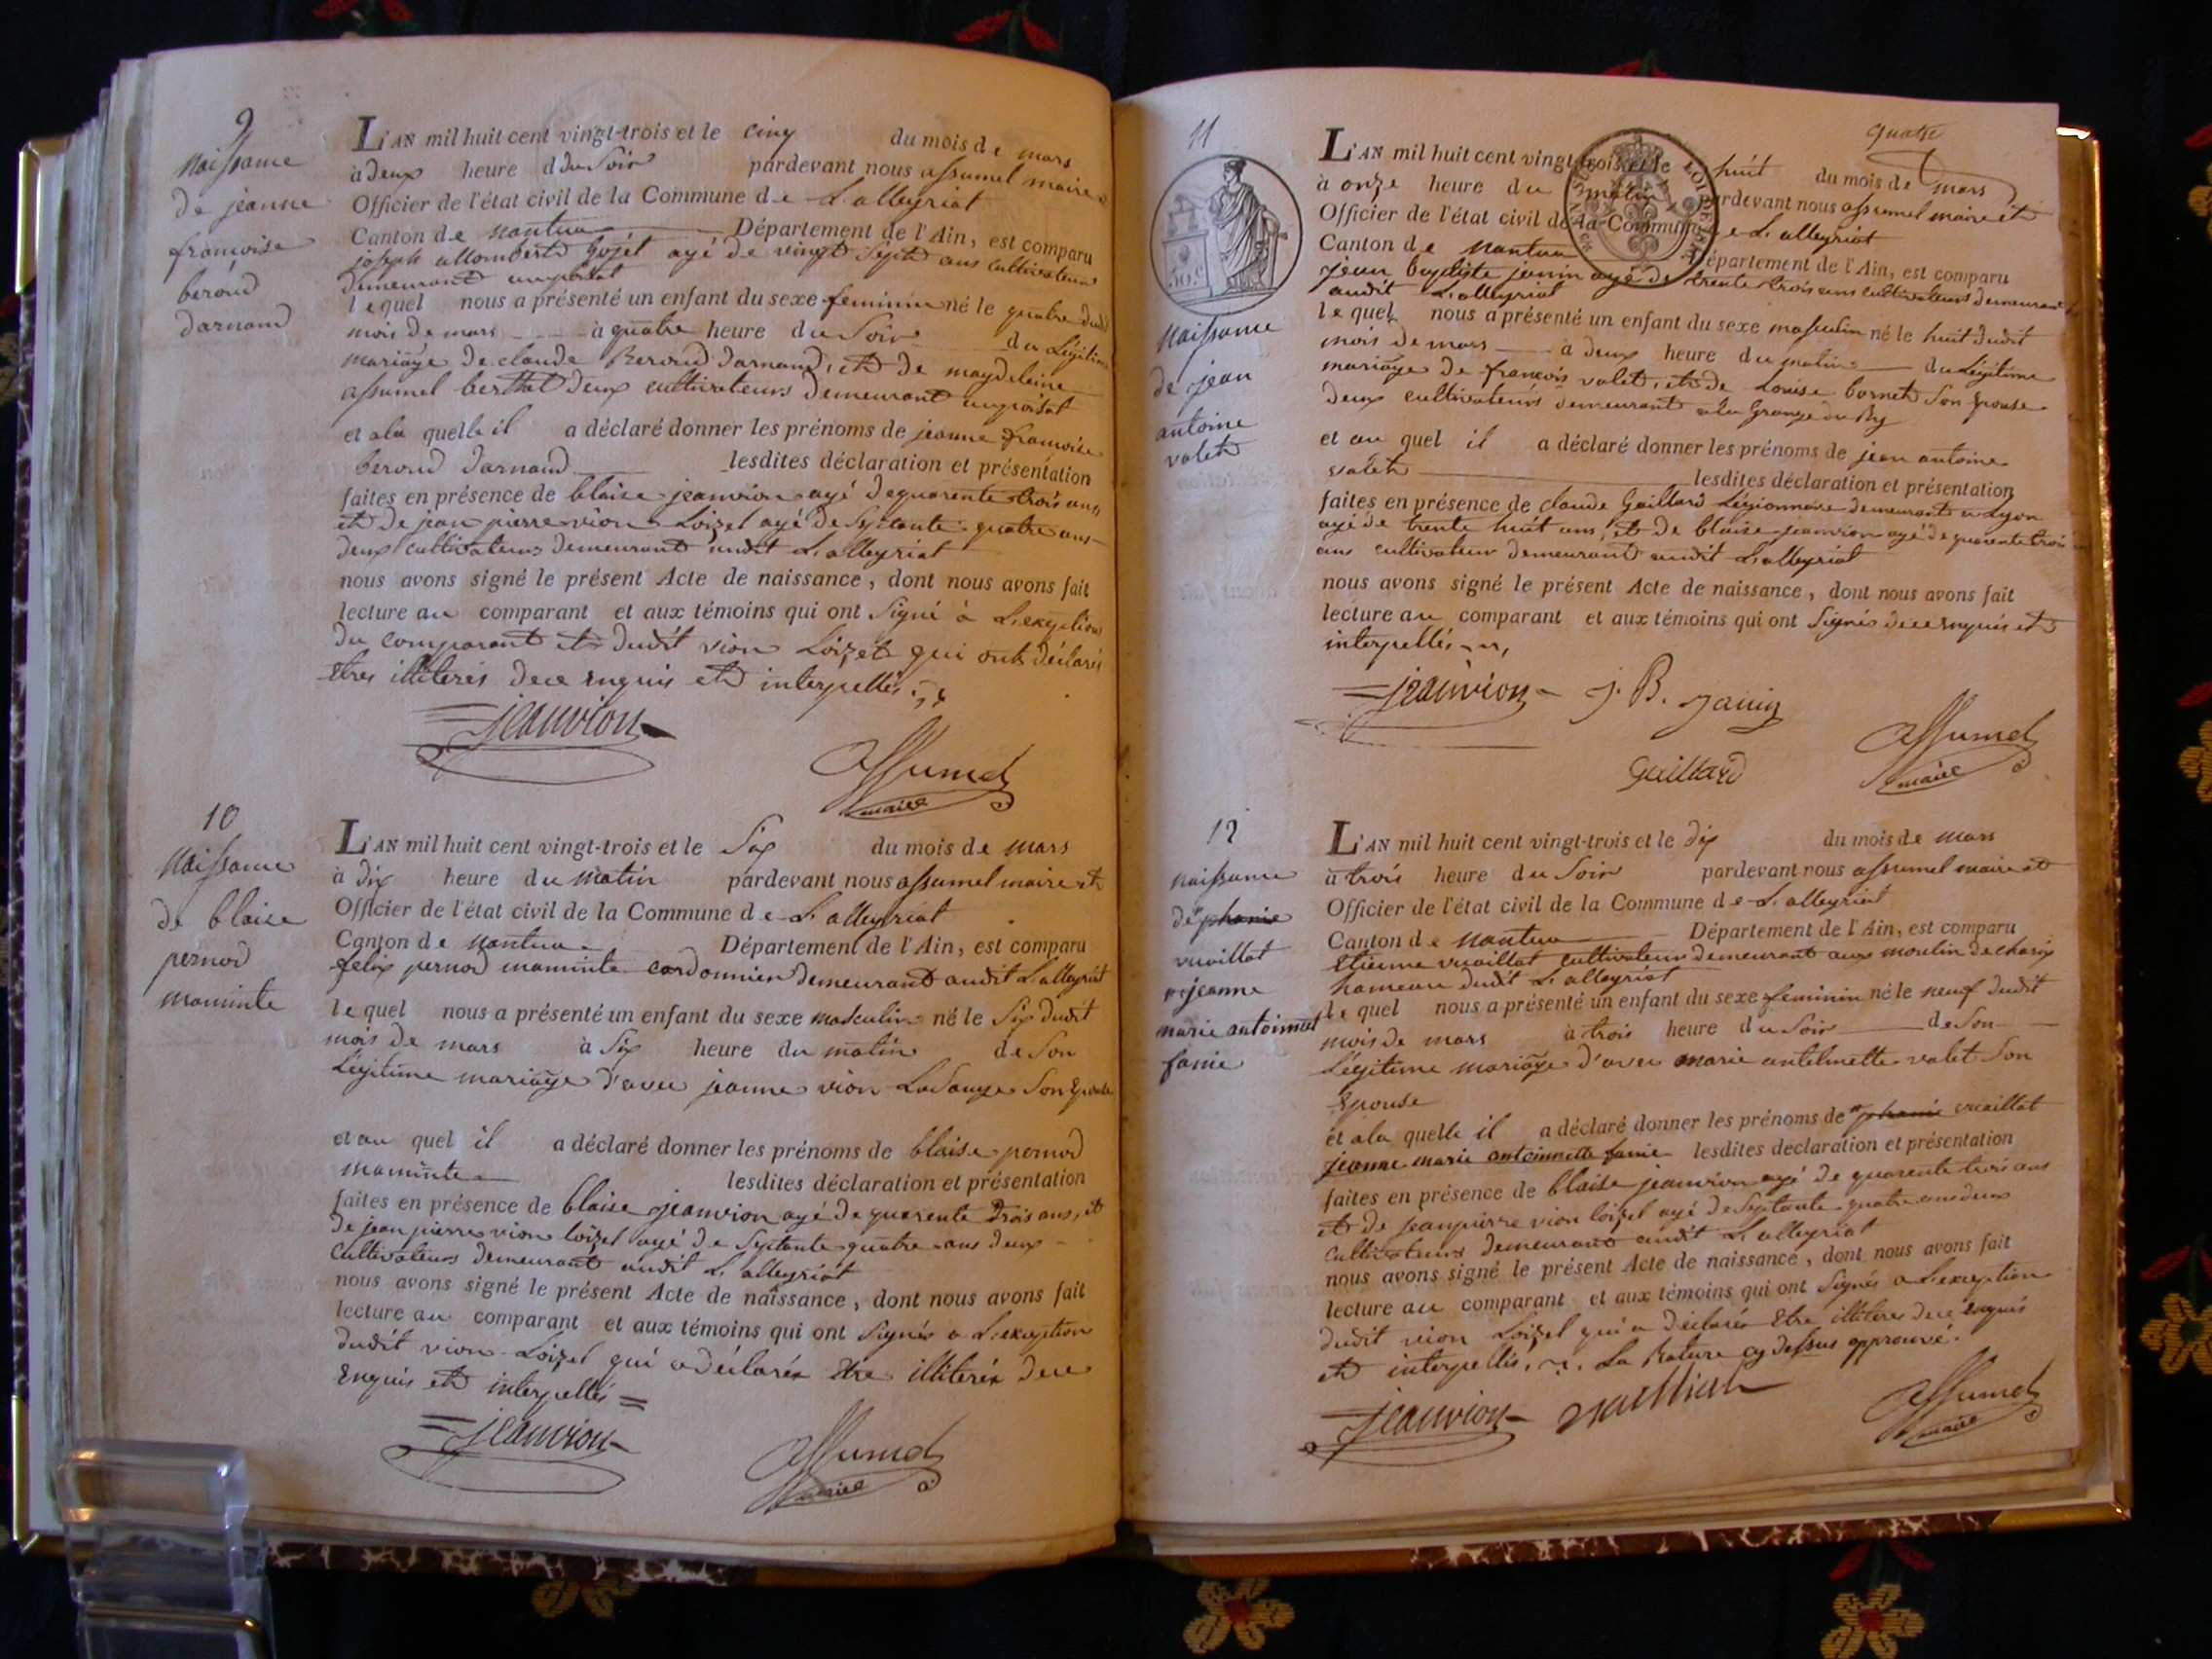 9
Naissance
de jeanne
françoise
beroud
darnand
L'AN mil huit cent vingt-trois et le cinq du mois de mars
à deux heure d du Soir pardevant nous assumel maire
Officier de l'état civil de la Commune de L'alleyriat
Canton de Nantua Département de l'Ain, est comparu
joseph allombert gojet agé de vingt Sept ans cultivateur
demeurant
lequel nous a présenté un enfant du sexe feminin né le quatre dudit
mois de mars à quatre heure du Soir du Légitime
mariage de claude Beroud darnand, et de magdeleine
assumel berthet deux cultivateurs demeurant
et a la quelle il a déclaré donner les prénoms de jeanne françoise
beroud darnand lesdites déclaration et présentation
faites en présence de blaise jeanvion agé de quarente trois ans
et de jean pierre vion Loizel agé de Septante quatre ans
deux cultivateurs demeurant audit L'alleyriat
nous avons signé le présent Acte de naissance, dont nous avons fait
lecture au comparant et aux témoins qui ont Signé à L'exeption
du comparant et dudit vion Loizel qui ont déclarés
Etres illiterés dece Enquis et interpellés
jeanvion
assumel
maire
10
Naissance
de blaise
pernod
maminte
L'AN mil huit cent vingt-trois et le Six du mois de mars
à dix heure du matin pardevant nous assumel maire et
Officier de l'état civil de la Commune de L'alleyriat
Canton de Nantua Département de l'Ain, est comparu
felix pernod maminte cordonnier demeurant audit L'alleyriat
lequel nous a présenté un enfant du sexe masculin né le Six dudit
mois de mars à Six heure du matin de Son
Légitime mariage d'avec jeanne vion Ladouge Son Epouse
et au quel il a déclaré donner les prénoms de blaise pernod
maminte lesdites déclaration et présentation
faites en présence de blaise jeanvion agé de quarente trois ans, et
de jean pierre vion loizel agé de Septante quatre ans deux
cultivateurs demeurant audit L'alleyriat
nous avons signé le présent Acte de naissance, dont nous avons fait
lecture au comparant et aux témoins qui ont Signés a L'exeption
dudit vion Loizel qui a déclarés Etre illiterés dece
Enquis et interpellés
jeanvion
assumel
maire
quatre
11
50 c
Naissance
de jean
antoine
valet
L'AN mil huit cent vingt-trois et le huit du mois de mars
à onze heure du matin pardevant nous assumel maire et
Officier de l'état civil de la Commune de L'alleyriat
Canton de Nantua Département de l'Ain, est comparu
jean baptiste janin agé de trente trois ans cultivateur demeurant
audit L'alleyriat
lequel nous a présenté un enfant du sexe masculin né le huit dudit
mois de mars à deux heure du matin du Légitime
mariage de françois valet, et de Louise bornet Son Epouse
deux cultivateurs demeurant a la Grange du
et au quel il a déclaré donner les prénoms de jean antoine
valet lesdites déclaration et présentation
faites en présence de claude Gaillard Légionnaire demeurant a Lyon
agé de trente huit ans, et de blaise jeanvion agé de quarente trois
ans cultivateur demeurant audit L'alleyriat
nous avons signé le présent Acte de naissance, dont nous avons fait
lecture au comparant et aux témoins qui ont Signés dece enquis et
interpellés
jeanvion J. B. janin
Gaillard
assumel
maire
12
naissance
de phanie
vuaillat
jeanne
marie antoinette
fanie
L'AN mil huit cent vingt-trois et le dix du mois de mars
à trois heure du Soir pardevant nous assumel maire et
Officier de l'état civil de la Commune de L'alleyriat
Canton de Nantua Département de l'Ain, est comparu
Etienne vuaillat cultivateur demeurant aux moulin de charix
hameau dudit L'alleyriat
lequel nous a présenté un enfant du sexe feminin né le neuf dudit
mois de mars à trois heure du Soir de Son
Légitime mariage d'avec marie antelmette valet Son
Epouse
et a la quelle il a déclaré donner les prénoms de phanie vuaillat
jeanne marie antoinnette fanie lesdites déclaration et présentation
faites en présence de blaise jeanvion agé de quarente trois ans
et de jeanpierre vion loizel agé de Septante quatre ans deux
cultivateurs demeurant audit L'alleyriat
nous avons signé le présent Acte de naissance, dont nous avons fait
lecture au comparant et aux témoins qui ont Signés a L'exeption
dudit vion Loizel qui a déclarés Etre illiteres dece Enquis
et interpellés. La Rature cy dessus approuvé.
jeanvion vuailliat
assumel
maire